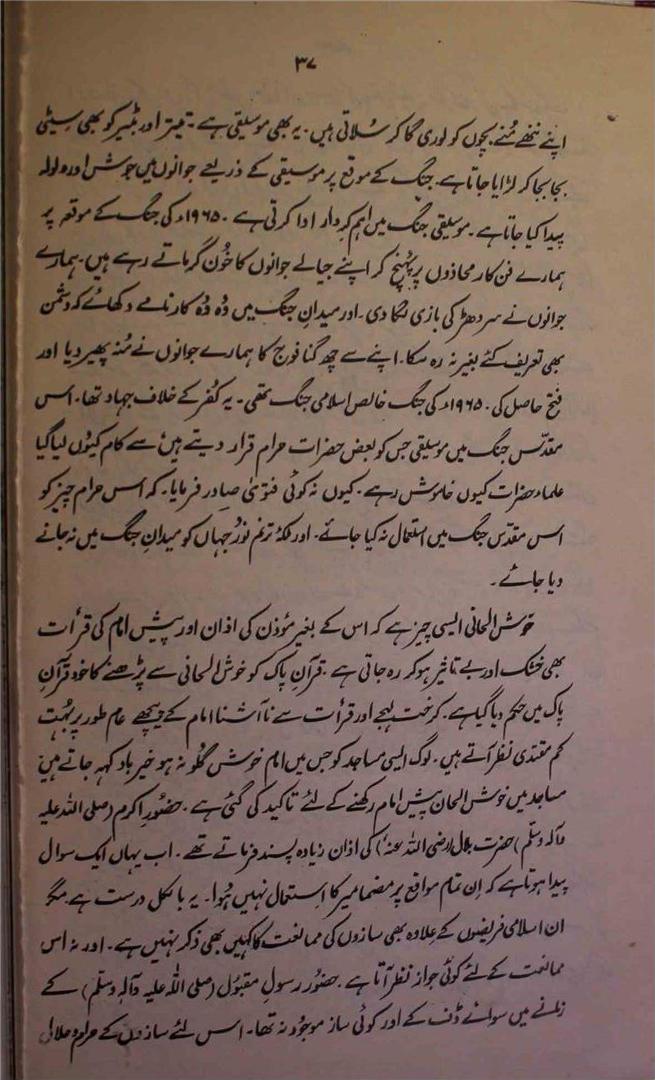 ۳۷
اپنے ننھے مُنے بچوں کو لوری گا کر سُلاتی ہیں۔ یہ بھی موسیقی ہے۔ تیتر اور بٹیر کو بھی سیٹی
بجا بجا کر لڑایا جاتا ہے۔ جنگ کے موقع پر موسیقی کے ذریعے جوانوں میں جوش اور ولولہ
پیدا کیا جاتا ہے۔ موسیقی جنگ میں اہم کردار ادا کرتی ہے۔ ۱۹۶۵ء کی جنگ کے موقعہ پر
ہمارے فن کار محاذوں پر پہُنچ کر اپنے جیالے جوانوں کا خُون گرماتے رہے ہیں۔ ہمارے
جوانوں نے سر دھڑ کی بازی لگا دی۔ اور میدانِ جنگ میں وُہ وُہ کارنامے دکھائے کہ دشمن
بھی تعریف کئے بغیر نہ رہ سکا۔ اپنے سے چھ گنا فوج کا ہمارے جوانوں نے مُنہ پھیر دیا اور
فتح حاصل کی۔ ۱۹۶۵ء کی جنگ خالص اسلامی جنگ تھی۔ یہ کُفر کے خلاف جہاد تھا۔ اس
مقدّس جنگ میں موسیقی جس کو بعض حضرات حرام قرار دیتے ہیں سے کام کیوں لیا گیا
علماء حضرات کیوں خاموش رہے۔ کیوں نہ کوئی فتویٰ صادر فرمایا۔ کہ اس حرام چیز کو
اس مقدّس جنگ میں استعمال نہ کیا جائے۔ اور ملکۂ ترنم نورجہاں کو میدانِ جنگ میں نہ جانے
دیا جائے۔
خوش الحانی ایسی چیز ہے کہ اس کے بغیر مؤذن کی اذان اور پیش امام کی قرأت
بھی خشک اور بے تاثیر ہو کر رہ جاتی ہے۔ قرآنِ پاک کو خوش الحانی سے پڑھنے کا خود قرآنِ
پاک میں حکم دیا گیا ہے۔ کرخت لہجے اور قرأت سے ناآشنا امام کے پیچھے عام طور پر بہُت
کم مقتدی نظر آتے ہیں۔ لوگ ایسی مساجد کو جس میں امام خوش گلُو نہ ہو خیر باد کہہ جاتے ہیں
مساجد میں خوش الحان پیش امام رکھنے کے لئے تاکید کی گئی ہے۔ حضُورِ اکرم (صلی اللہ علیہ
وآلہ وسلّم) حضرت بلال (رضی اللہ عنہ) کی اذان زیادہ پسند فرماتے تھے۔ اب یہاں ایک سوال
پیدا ہوتا ہے کہ اِن تمام مواقع پر مضامیر کا اِستعمال نہیں ہُوا۔ یہ بالکل درست ہے مگر
ان اسلامی فریضوں کے علاوہ بھی سازوں کی ممانعت کا کہیں بھی ذکر نہیں ہے۔ اور نہ اس
ممانعت کے لئے کوئی جواز نظر آتا ہے۔ حضُور رسولِ مقبُول (صلی اللہ علیہ وآلہٖ وسلّم) کے
زمانے میں سوائے دَف کے اور کوئی ساز موجُود نہ تھا۔ اس لئے سازوں کے حرام و حلال